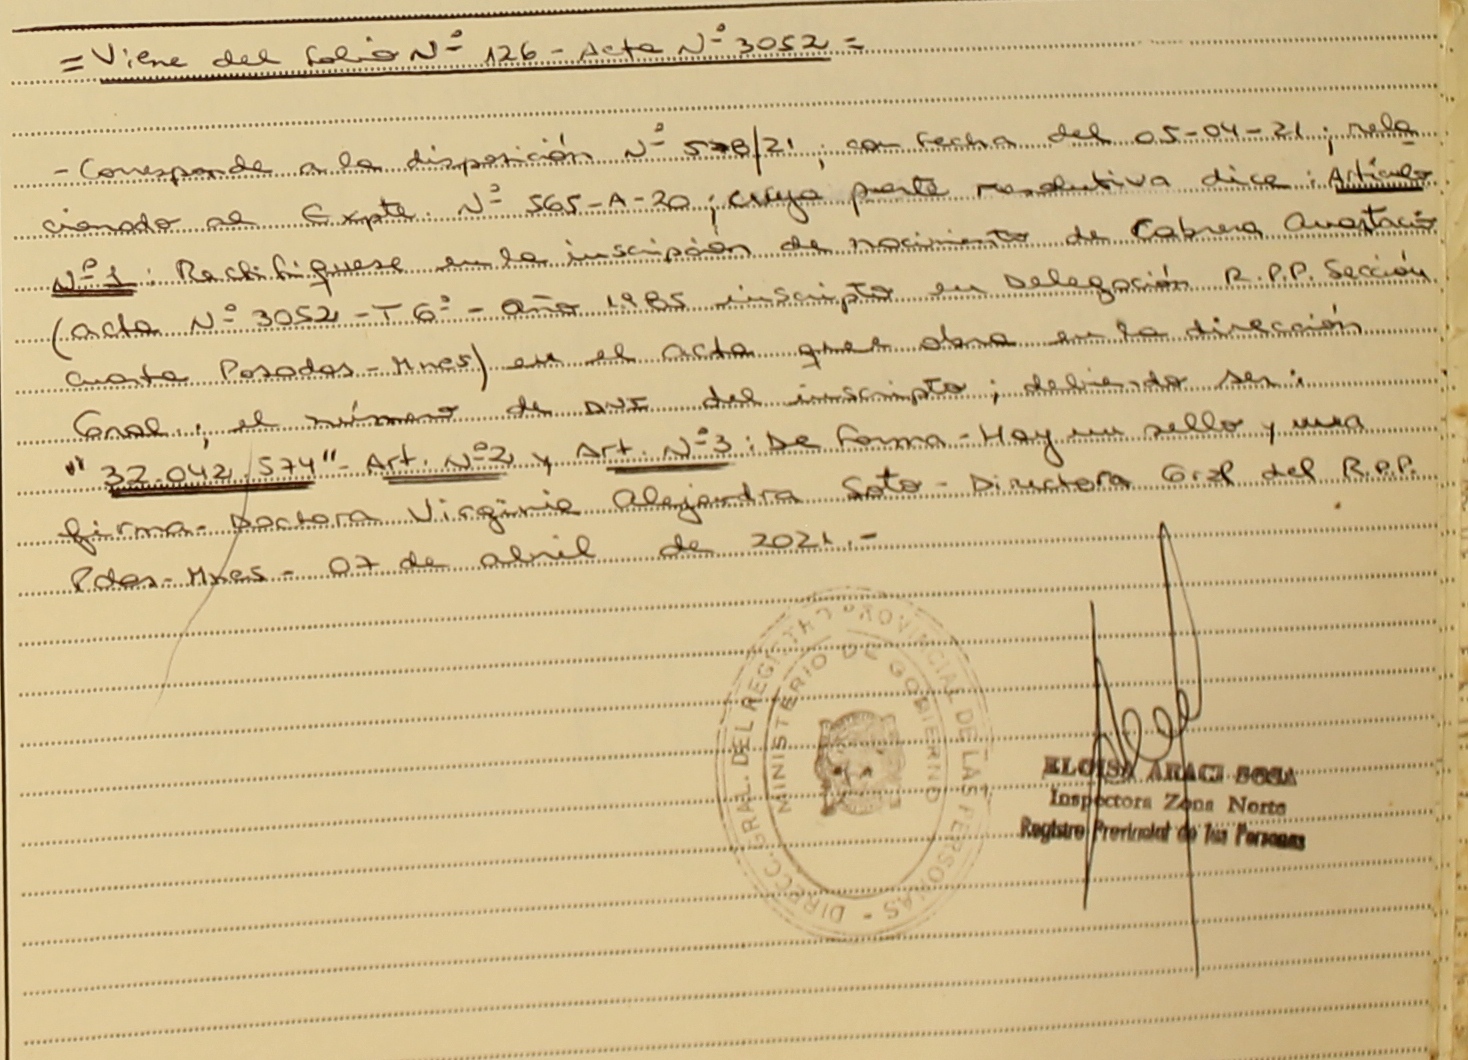 = Viene del folio Nº 126 - Acta Nº 3052 =
- Corresponde a la disposición Nº 578/21; con fecha del 05-04-21; rela
cionado al Expte. Nº 565-A-20; cuya parte resolutiva dice: Artículo
Nº 1: Rectifíquese en la inscripción de nacimiento de Cabrera Anastacio
(acta Nº 3052 - T 6º - año 1985 inscripto en Delegación R.P.P. Sección
cuarta Posadas - Mnes) en el acta que obra en la dirección
Gral.; el número de DNI del inscripto; debiendo ser:
"32.042.574" - Art. Nº 2 y Art. Nº 3: De forma - Hay un sello y una
firma - Doctora Virginia Alejandra Soto - Directora Gral del R.P.P.
Pdas - Mnes - 07 de abril de 2021. -
DIRECC. GRAL. DEL REGISTRO PROVINCIAL DE LAS PERSONAS -
MINISTERIO DE GOBIERNO
ELOISA ARACI SOSA
Inspectora Zona Norte
Registro Provincial de las Personas